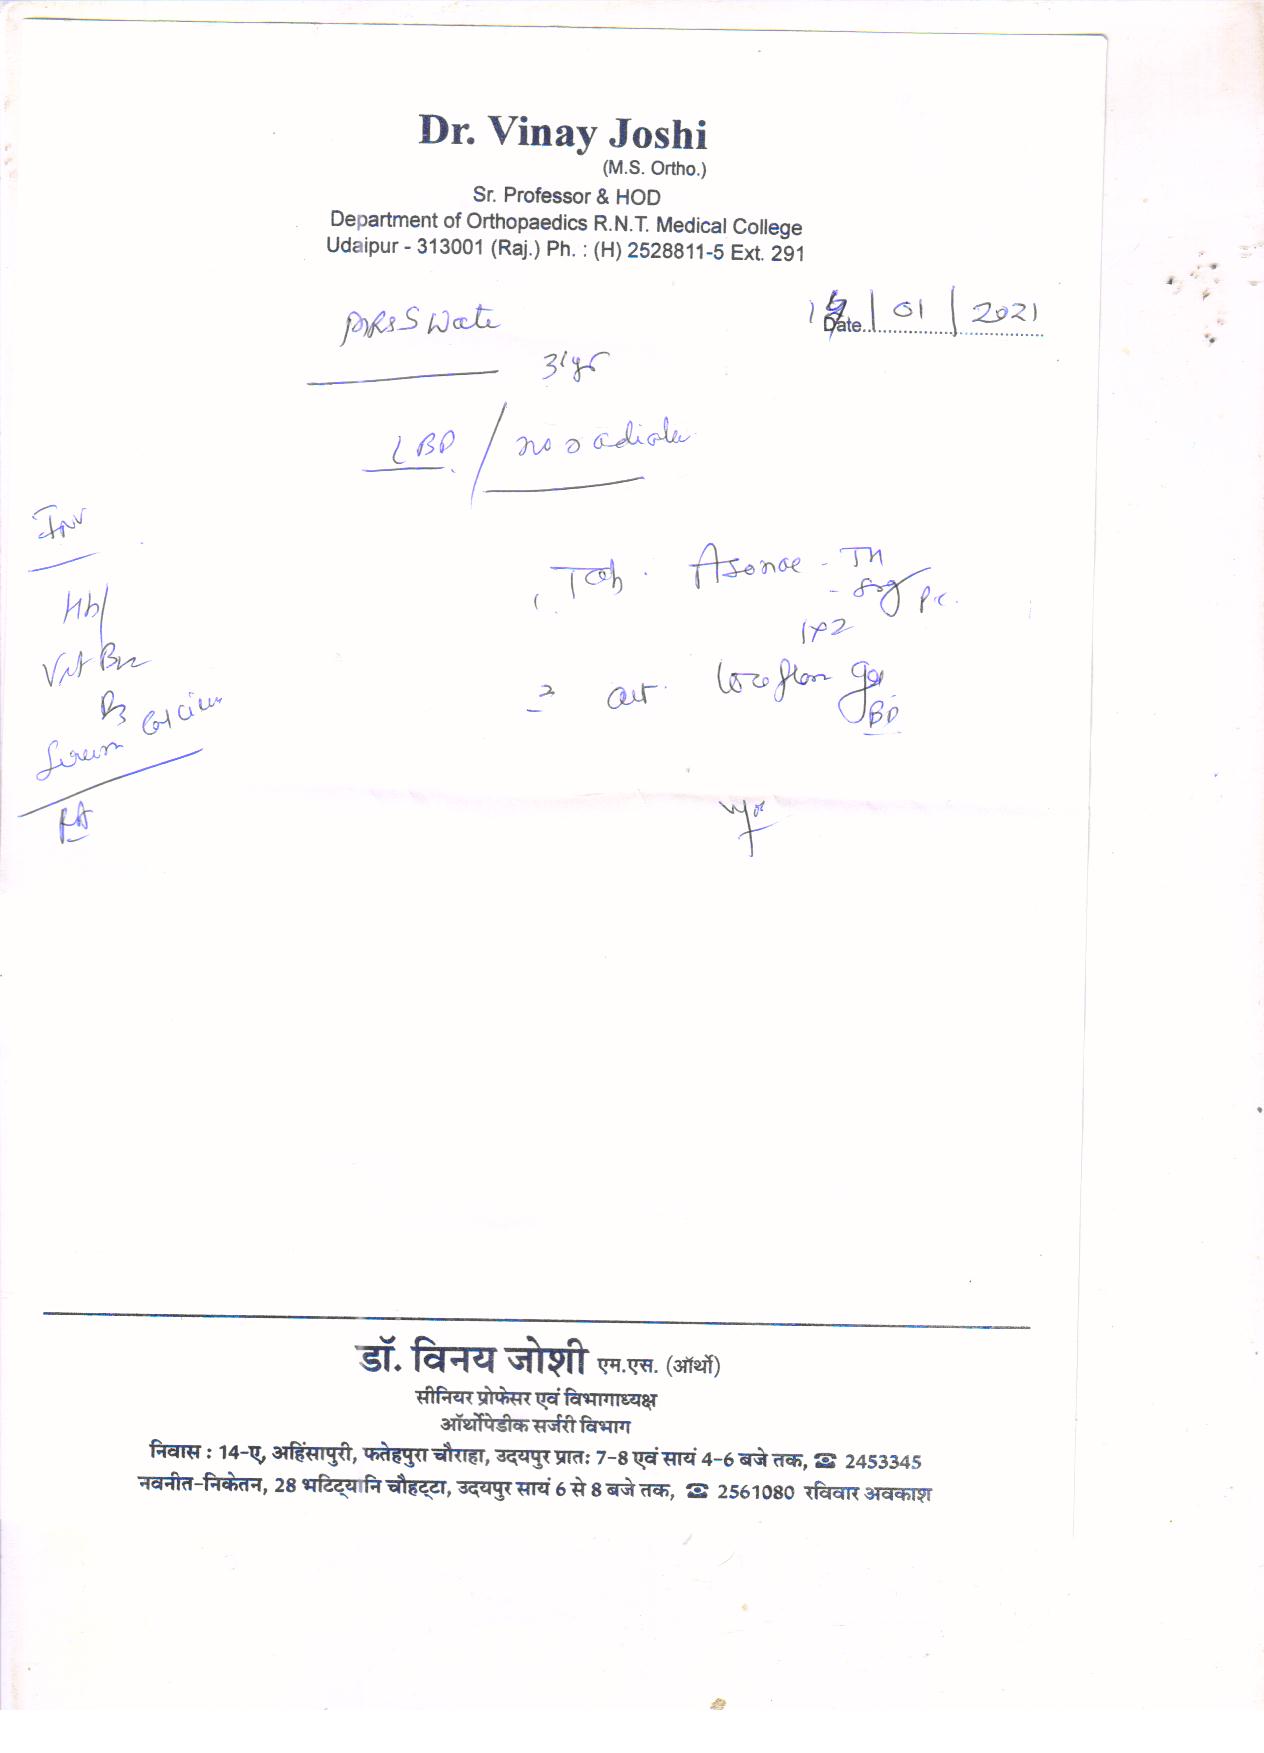 Dr. Vinay Joshi
(M.S. Ortho.)
Sr. Professor & HOD
Department of Orthopaedics R.N.T. Medical College
Udaipur - 313001 (Raj.) Ph. : (H) 2528811-5 Ext. 291
Date.. / 01 / 2021
Mrs Swate
31yr
LBP / no radiate
Inv
Hb/
Vit B12
D3
Serum Calcium
RA
1, Tab. - TH
P.C.
1x2
2 gel
डॉ. विनय जोशी एम.एस. (ऑर्थो)
सीनियर प्रोफेसर एवं विभागाध्यक्ष
ऑर्थोपेडीक सर्जरी विभाग
निवास : 14-ए, अहिंसापुरी, फतेहपुरा चौराहा, उदयपुर प्रातः 7-8 एवं सायं 4-6 बजे तक, ☎ 2453345
नवनीत-निकेतन, 28 भटि्यानि चौहट्टा, उदयपुर सायं 6 से 8 बजे तक, ☎ 2561080 रविवार अवकाश